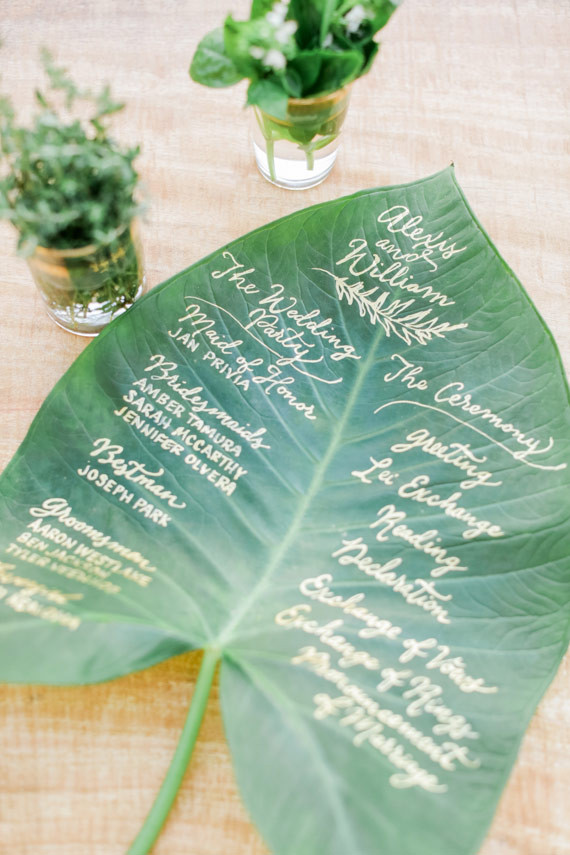 Alexis
and
William
The Wedding
Party
Maid of Honor
JAN PRIVIA
Bridesmaids
AMBER TAMURA
SARAH MCCARTHY
JENNIFER OLVERA
Bestman
JOSEPH PARK
Groomsmen
AARON WESTLAKE
BEN JACKSON
The Ceremony
Greeting
Lei Exchange
Reading
Declaration
Exchange of Vows
Exchange of Rings
Pronouncement
of Marriage